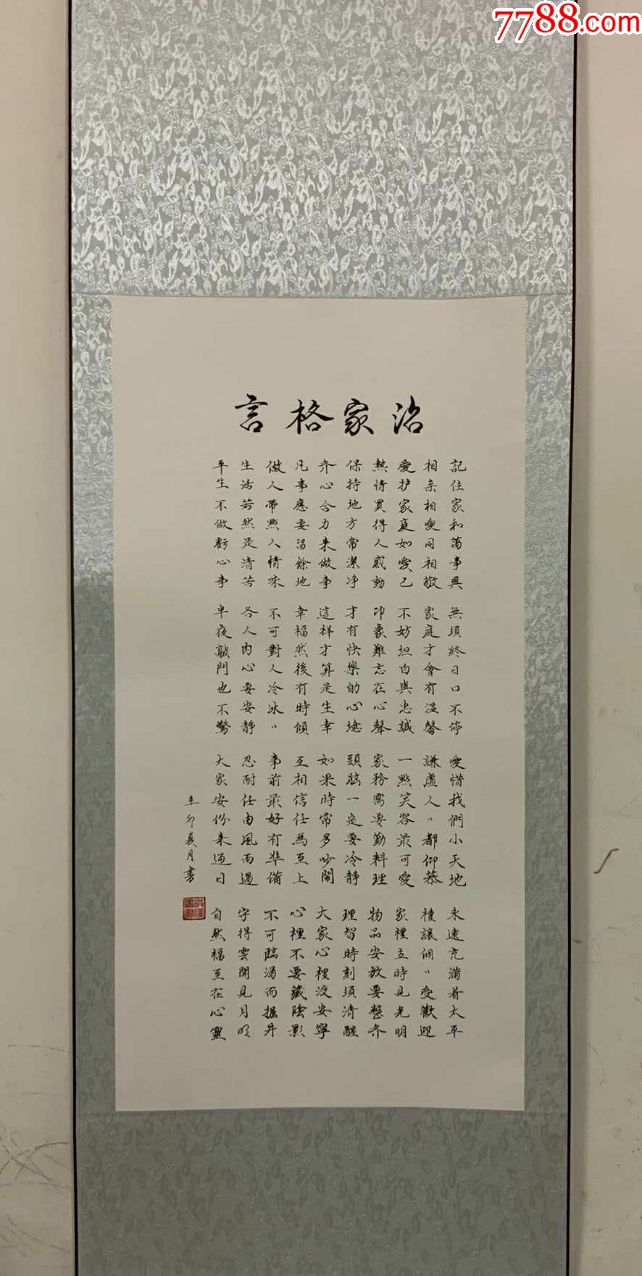 7788.com
治家格言
記住家和萬事興 無須終日口不停 愛惜我們小天地 永遠充滿着太平
相亲相愛同相敬 家庭才會有温馨 謙虛人〃都仰慕 種讓個〃受歡迎
愛护家庭如愛己 不妨坦白與忠誠 一點笑容最可愛 家裡立時見光明
熱情買得人感動 印象難忘在心聲 家務需要勤料理 物品安放要整齐
保持地方常潔净 才有快樂的心境 頭腦一定要冷靜 理智時刻須清醒
齐心合力来做事 這样才算是生幸 如果時常多吵鬧 大家心裡没安寧
凡事應要留餘地 幸福然後有時傾 互相信任為至上 心裡不要藏陰影
做人帶點人情味 不可對人冷冰〃 事前最好有準備 不可臨渴而掘井
生活若然是清苦 各人内心要安静 忍耐任由風雨過 守得雲開見月明
平生不做虧心事 半夜敲門也不驚 大家安份来過日 自然福至在心靈
辛卯夏月書